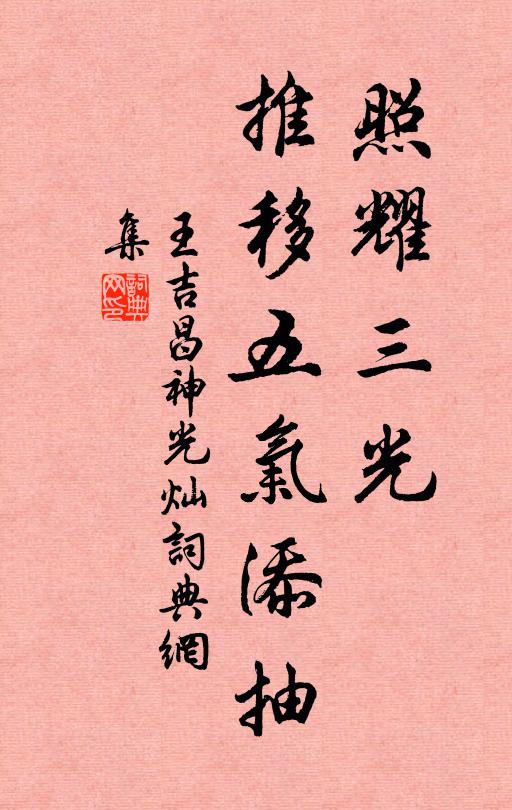 照耀三光
推移五氣添抽
王吉昌神光灿詞典網
集
詞典
网印